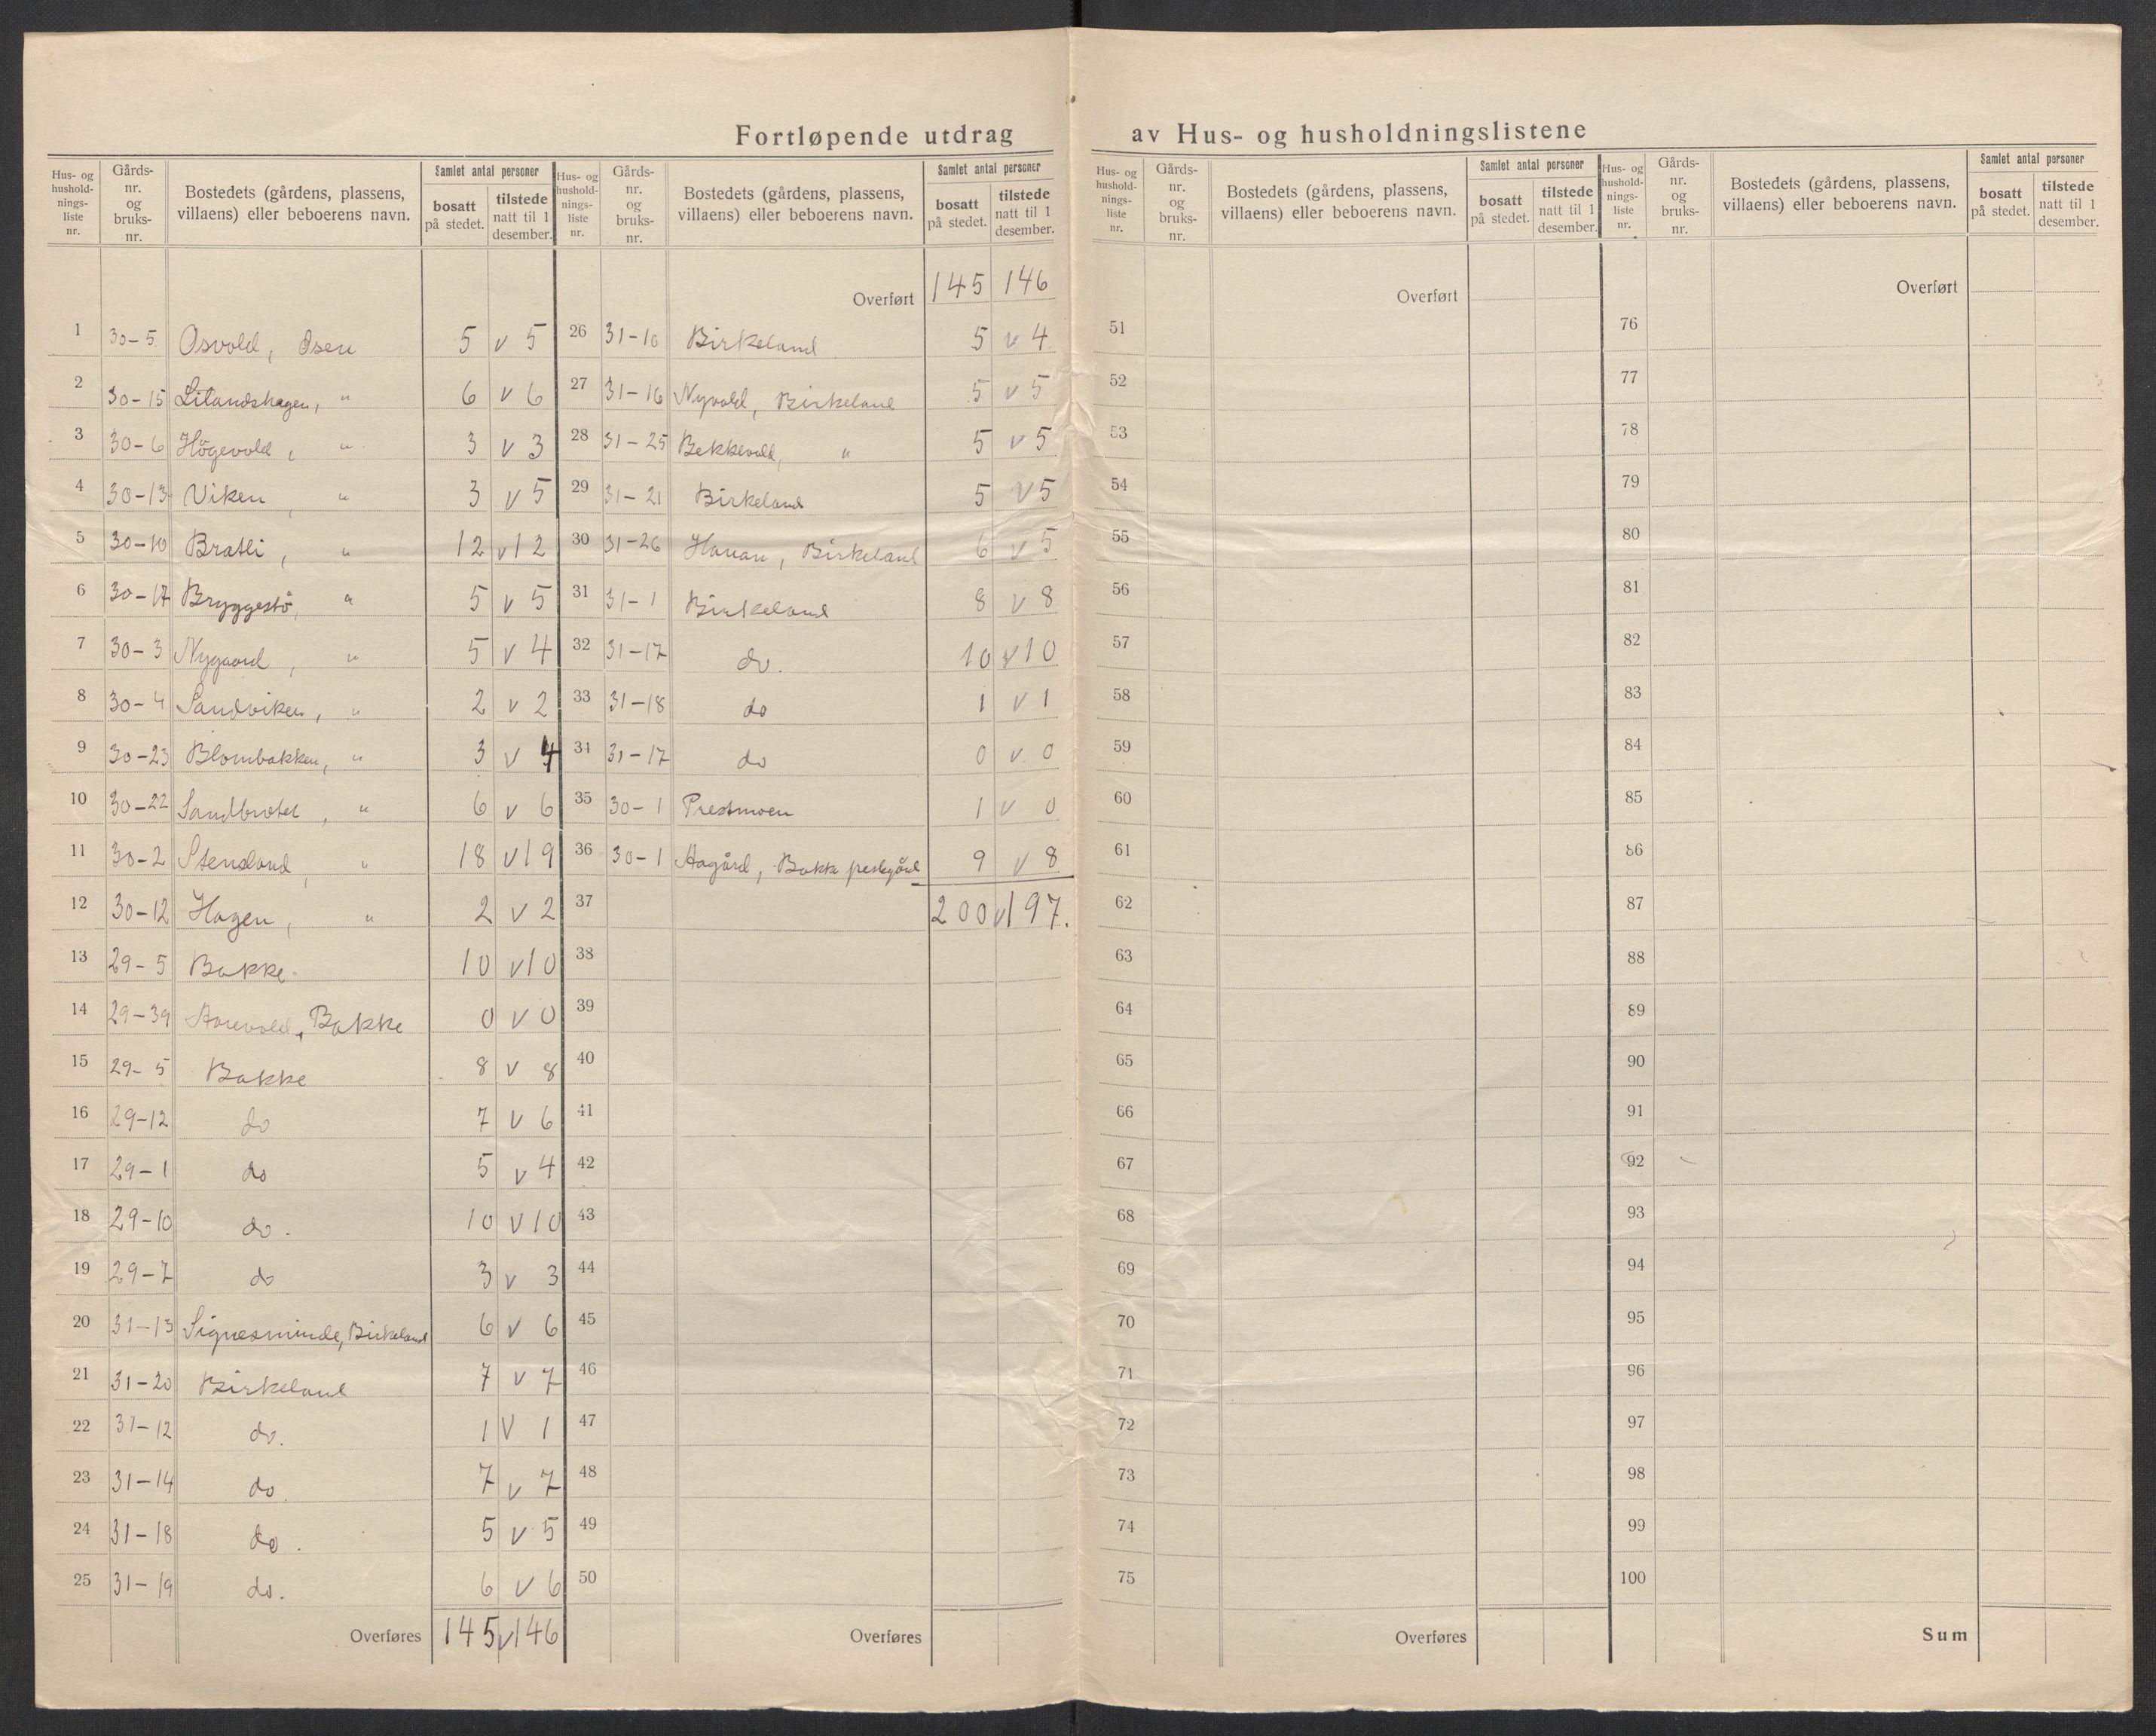 Fortløpende utdrag av Hus- og husholdningslistene
Hus- og hushold-nings-liste nr. | Gårds-nr. og bruks-nr. | Bostedets (gårdens, plassens, villaens) eller beboerens navn. | Samlet antal personer | bosatt på stedet. | tilstede natt til 1 desember.
1 30-5 Osvold, Øsen 5 v 5
2 30-15 Litandshagen, " 6 v 6
3 30-6 Högevold, " 3 v 3
4 30-13 Viken, " 3 v 5
5 30-10 Bratli, " 12 v 12
6 30-17 Bryggestö, " 5 v 5
7 30-3 Nygaard, " 5 v 4
8 30-4 Sandviken, " 2 v 2
9 30-23 Blombakken, " 3 v 4
10 30-22 Sandbrotet, " 6 v 6
11 30-2 Stensland, " 18 v 19
12 30-12 Hagen, " 2 v 2
13 29-5 Bakke 10 v 10
14 29-39 Aarevold, Bakke 0 v 0
15 29-5 Bakke 8 v 8
16 29-12 do 7 v 6
17 29-1 do 5 v 4
18 29-10 do. 10 v 10
19 29-7 do 3 v 3
20 31-13 Signesminde, Birkeland 6 v 6
21 31-20 Birkeland 7 v 7
22 31-12 do. 1 v 1
23 31-14 do 7 v 7
24 31-18 do. 5 v 5
25 31-19 do. 6 v 6
Overføres 145 v 146
Hus- og hushold-nings-liste nr. | Gårds-nr. og bruks-nr. | Bostedets (gårdens, plassens, villaens) eller beboerens navn. | Samlet antal personer | bosatt på stedet. | tilstede natt til 1 desember.
Overført 145 146
26 31-10 Birkeland 5 v 4
27 31-16 Nyvold, Birkeland 5 v 5
28 31-25 Bekkevold, " 5 v 5
29 31-21 Birkeland 5 v 5
30 31-26 Hauan, Birkeland 6 v 5
31 31-1 Birkeland 8 v 8
32 31-17 do. 10 v 10
33 31-18 do 1 v 1
34 31-17 do 0 v 0
35 30-1 Prestmoen 1 v 0
36 30-1 Aagård, Bakke prestegård 9 v 8
37 200 v 197.
38
39
40
41
42
43
44
45
46
47
48
49
50
Overføres
Hus- og hushold-nings-liste nr. | Gårds-nr. og bruks-nr. | Bostedets (gårdens, plassens, villaens) eller beboerens navn. | Samlet antal personer | bosatt på stedet. | tilstede natt til 1 desember.
Overført
51
52
53
54
55
56
57
58
59
60
61
62
63
64
65
66
67
68
69
70
71
72
73
74
75
Overføres
Hus- og hushold-nings-liste nr. | Gårds-nr. og bruks-nr. | Bostedets (gårdens, plassens, villaens) eller beboerens navn. | Samlet antal personer | bosatt på stedet. | tilstede natt til 1 desember.
Overført
76
77
78
79
80
81
82
83
84
85
86
87
88
89
90
91
92
93
94
95
96
97
98
99
100
Sum